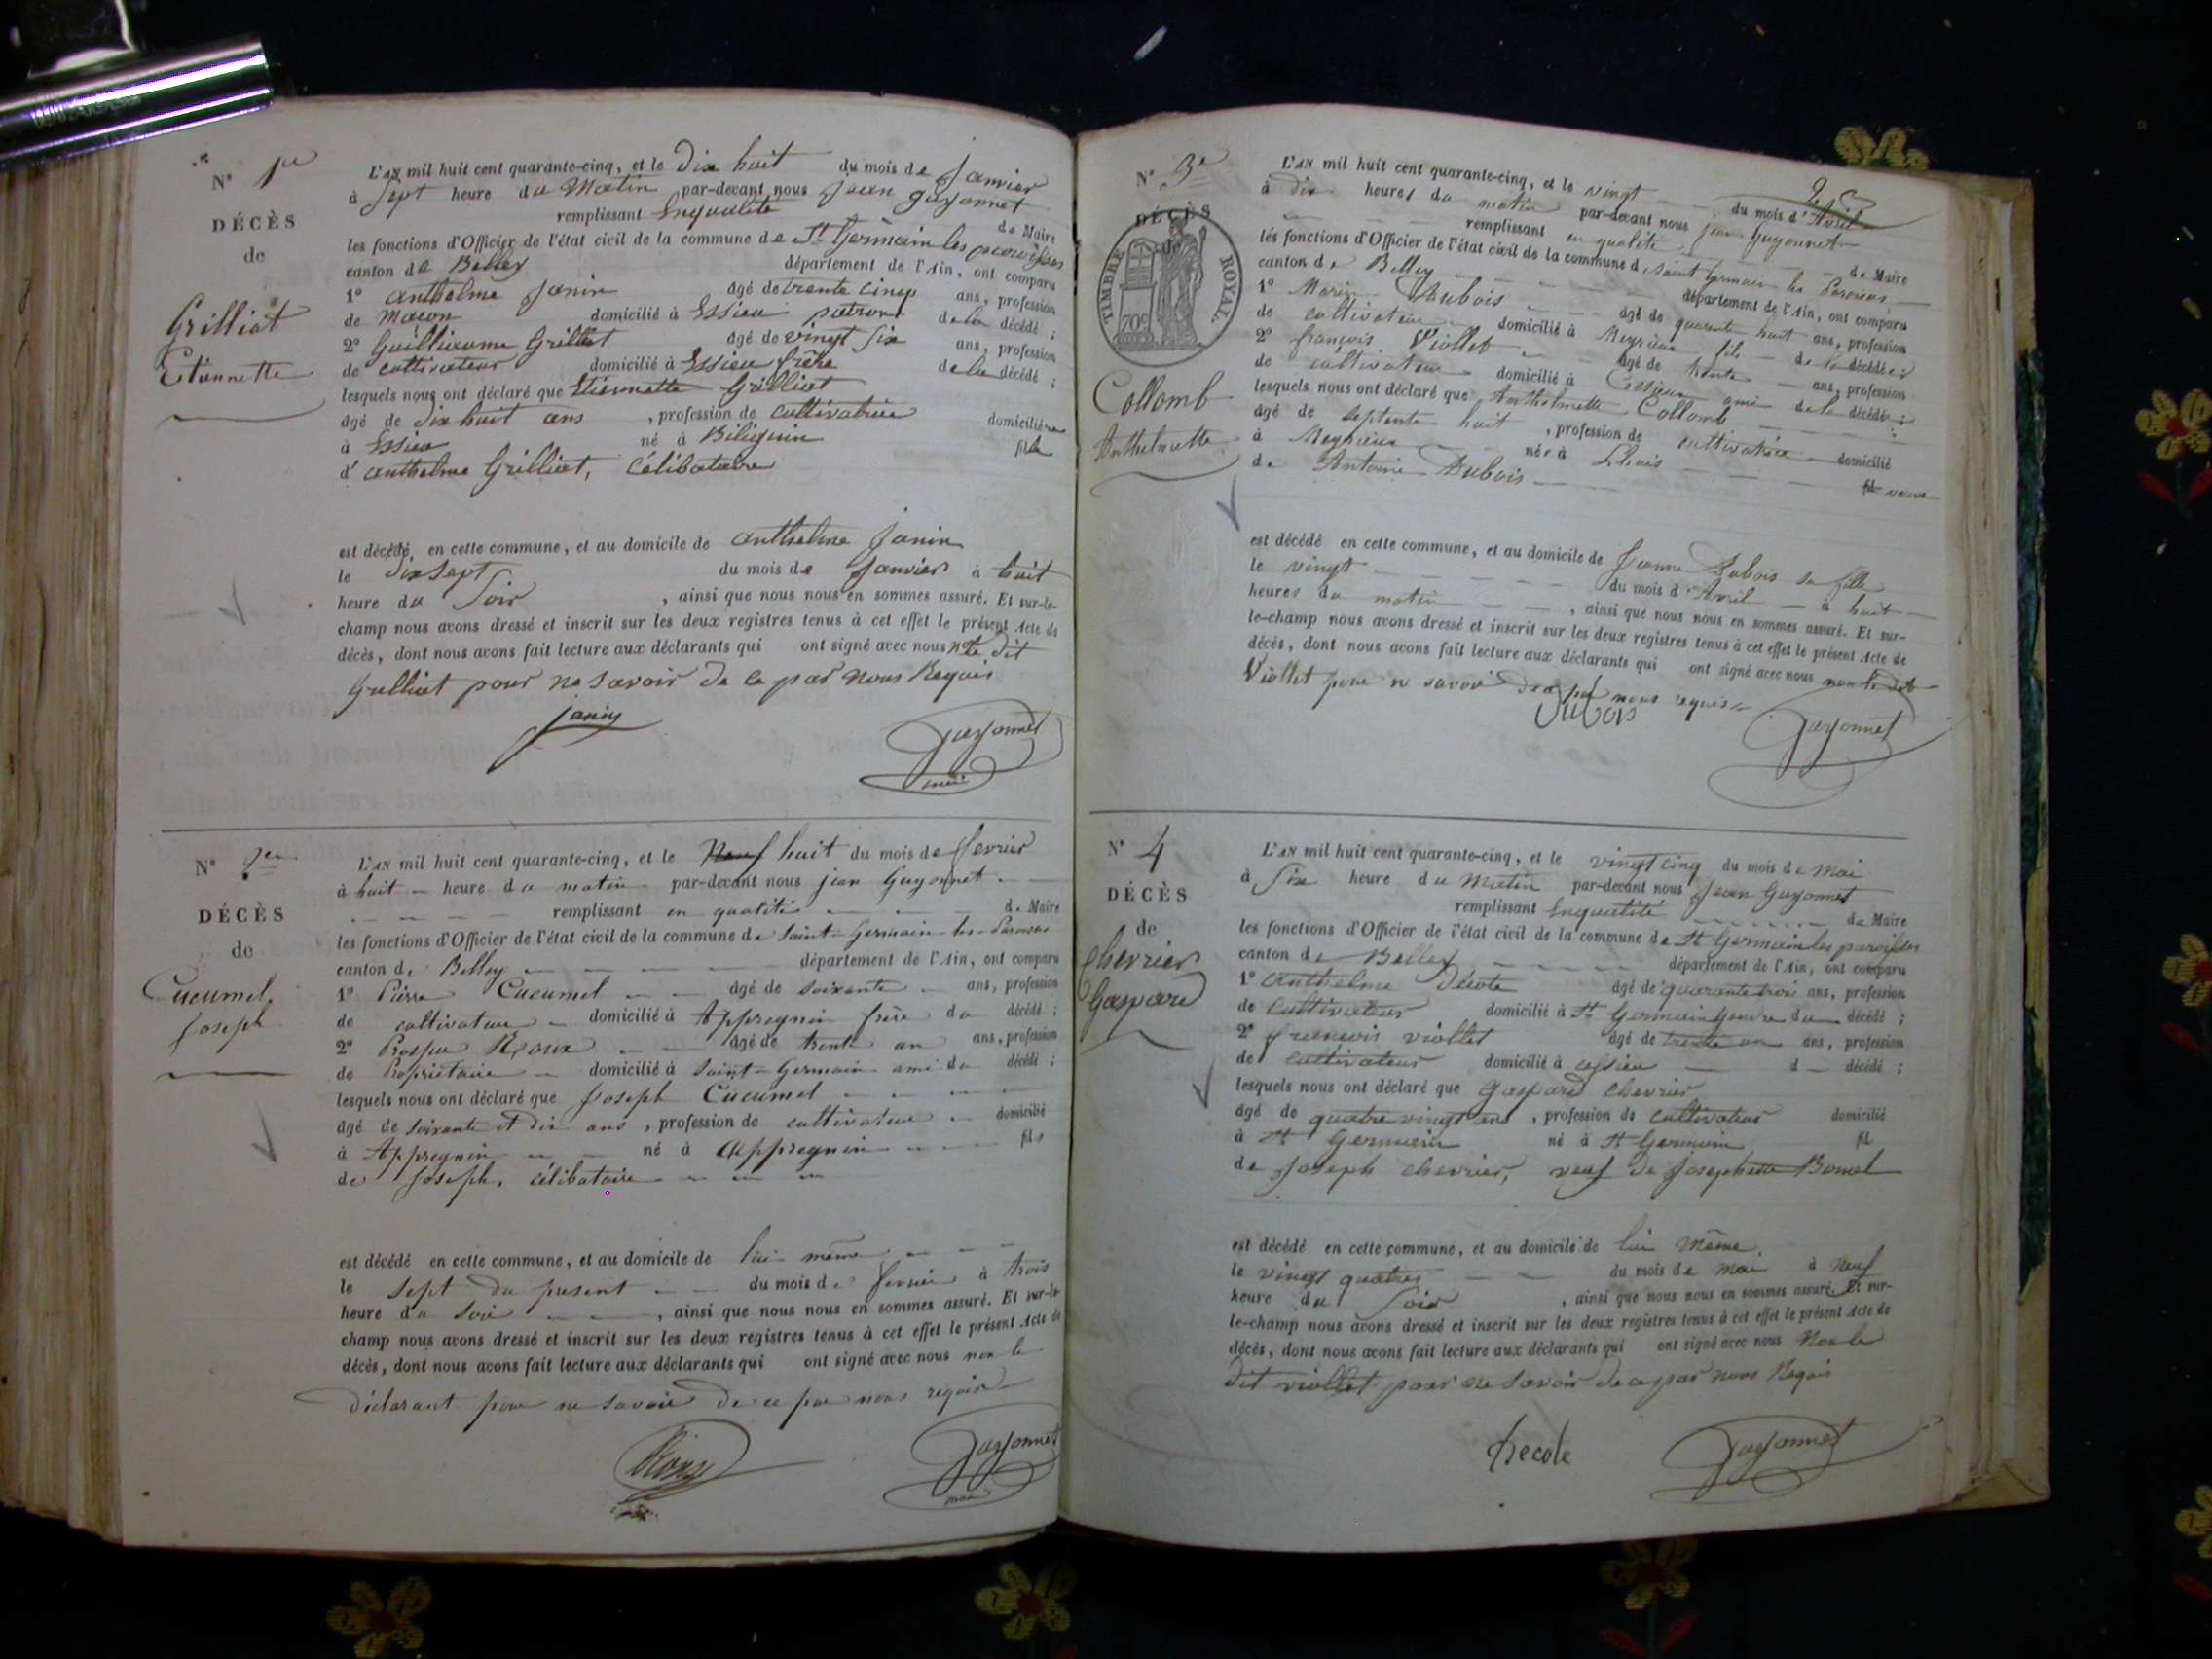 N° 1er
DÉCÈS
de
Grilliat
Etiennette
L'AN mil huit cent quarante-cinq, et le dix huit du mois de Janvier
à Sept heure du Matin par-devant nous Jean Guyonnet
remplissant Enqualité de Maire
les fonctions d'Officier de l'état civil de la commune de St Germain les paroisses
canton de Belley département de l'Ain, ont comparu
1° anthelme Janin âgé de trente cinq ans, profession
de Macon domicilié à Essieu patron de la décédé ;
2° Guilliaume Grilliat âgé de vingt Six ans, profession
de cultivateur domicilié à Essieu frère de la décédé ;
lesquels nous ont déclaré que Etiennette Grilliat
âgé de dix huit ans , profession de cultivatrice domiciliée
à Essieu né à Bilignin fille
d' anthelme Grilliat, Célibataire
est décédé, en cette commune, et au domicile de anthelme Janin
le dix Sept du mois de Janvier à huit
heure du Soir , ainsi que nous nous en sommes assuré. Et sur-le-
champ nous avons dressé et inscrit sur les deux registres tenus à cet effet le présent Acte de
décès, dont nous avons fait lecture aux déclarants qui ont signé avec nous dit
Grilliat pour ne Savoir de ce par nous Requis
Janin
Guyonnet
maire
N° 2em
DÉCÈS
de
Cucumel
Joseph
L'AN mil huit cent quarante-cinq, et le Neuf huit du mois de fevrier
à huit heure du matin par-devant nous jean Guyonnet
remplissant en qualité de Maire
les fonctions d'Officier de l'état civil de la commune de Saint-Germain-les-Paroisses
canton de Belley département de l'Ain, ont comparu
1° Pierre Cucumel âgé de soixante ans, profession
de cultivateur domicilié à Appregnin frère du décédé ;
2° Prosper Roux âgé de trente un ans, profession
de Propriétaire domicilié à Saint-Germain ami du décédé ;
lesquels nous ont déclaré que Joseph Cucumel
âgé de soixante et dix ans , profession de cultivateur domicilié
à Appregnin né à Appregnin fils
de Joseph, célibataire
est décédé en cette commune, et au domicile de lui-même
le sept du présent du mois de fevrier à trois
heure du soir , ainsi que nous nous en sommes assuré. Et sur-le-
champ nous avons dressé et inscrit sur les deux registres tenus à cet effet le présent Acte de
décès, dont nous avons fait lecture aux déclarants qui ont signé avec nous non le
déclarant pour ne savoir de ce par nous requis
Roux
Guyonnet
maire
2
N° 3e
DÉCÈS
de
TIMBRE ROYAL
70c
Collomb
Anthelmette
L'AN mil huit cent quarante-cinq, et le vingt du mois d'Avril
à dix heures du matin par-devant nous jean Guyonnet
remplissant en qualité de Maire
les fonctions d'Officier de l'état civil de la commune de Saint Germain les Paroisses
canton de Belley département de l'Ain, ont comparu
1° Marin Dubois âgé de quarante huit ans, profession
de cultivateur domicilié à Meyrieux fils de la décédée
2° françois Viollet âgé de trente ans, profession
de cultivateur domicilié à Essieux ami de la décédée ;
lesquels nous ont déclaré que Anthelmette Collomb
âgé de septente huit , profession de cultivatrice domicilié
à Meyrieux née à Lhuis fil veuve
de Antoine Dubois
est décédé en cette commune, et au domicile de Jeanne Dubois sa fille
le vingt du mois d'Avril à huit
heures du matin , ainsi que nous nous en sommes assuré. Et sur-
le-champ nous avons dressé et inscrit sur les deux registres tenus à cet effet le présent Acte de
décès, dont nous avons fait lecture aux déclarants qui ont signé avec nous non le dit
Viollet pour ne savoir de ce par nous requis
Dubois
Guyonnet
N° 4
DÉCÈS
de
Chevrier
Gaspard
L'AN mil huit cent quarante-cinq, et le vingt cinq du mois de Mai
à Six heure du Matin par-devant nous Jean Guyonnet
remplissant Enqualité de Maire
les fonctions d'Officier de l'état civil de la commune de St Germain les paroisses
canton de Belley département de l'Ain, ont comparu
1° anthelme Décote âgé de quarante trois ans, profession
de Cultivateur domicilié à St Germain Gendre du décédé ;
2° françois viollet âgé de trente un ans, profession
de cultivateur domicilié à essieu d décédé ;
lesquels nous ont déclaré que Gaspard Chevrier
âgé de quatre vingt ans , profession de cultivateur domicilié
à St Germain né à St Germain fil
de Joseph chevrier, veuf de Josephette Bomel
est décédé en cette commune, et au domicile de lui Même.
le vingt quatres du mois de Mai à Neuf
heure du Soir , ainsi que nous nous en sommes assuré. Et sur-
le-champ nous avons dressé et inscrit sur les deux registres tenus à cet effet le présent Acte de
décès, dont nous avons fait lecture aux déclarants qui ont signé avec nous Non le
dit viollet pour ne Savoir de ce par nous Requis
Decote
Guyonnet